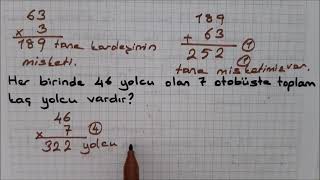 63
x 3
189 tane kardeşinin
misketi.
189
+ 63
252
tane misketimiz var.
Her birinde 46 yolcu olan 7 otobüste toplam
kaç yolcu vardır?
46
x 7 ④
322 yolcu